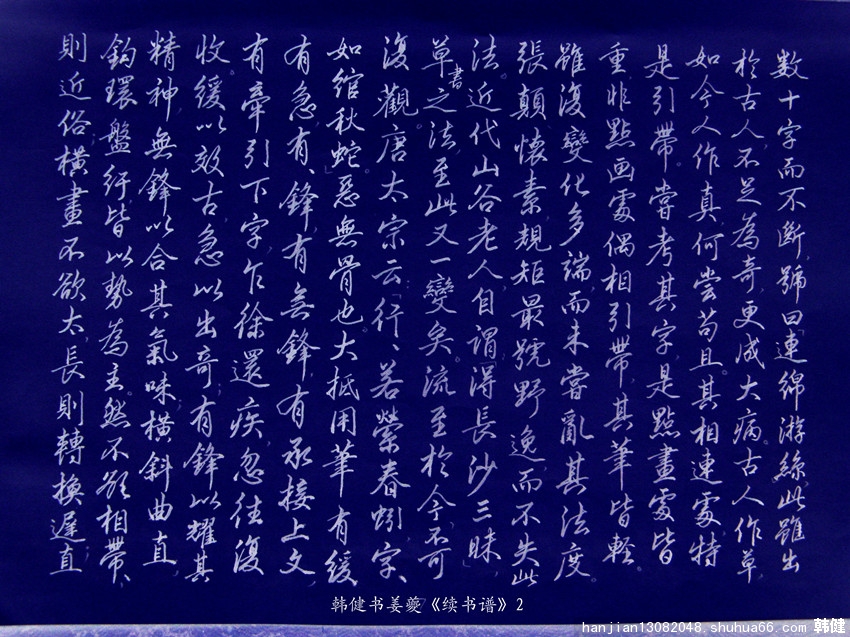 数十字而不断，號曰「連綿游絲」，此雖出
於古人，不足為奇，更成大病。古人作草，
如今人作真，何尝苟且。其相連處，特
是引帶。嘗考其字，是點畫處皆
重，非點画處偶相引帶，其筆皆輕。
雖復變化多端，而未嘗亂其法度。
張顛、懷素規矩最號野逸，而不失此
法。近代山谷老人，自謂「得長沙三昧」，
草書之法至此又一變矣。流至於今，不可
復觀。唐太宗云：「行、若縈春蚓，字、
如绾秋蛇」。惡無骨也。大抵用筆有緩
有急，有、鋒，有無鋒，有承接上文，
有牽引下字，乍徐還疾，忽往復
收。緩以效古，急以出奇；有鋒以耀其
精神，無鋒以含其氣味，橫斜曲直，
鈎環盤紆，皆以势為主。然不欲相帶，
則近俗；橫畫不欲太長，則轉換遲；直
韩健书姜夔《续书谱》2
hanjian13082048.shuhua66.com 韩健